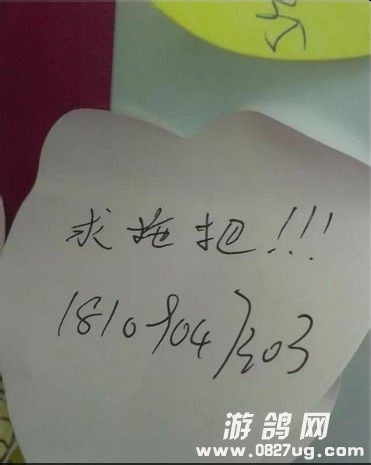 求拖把!!!
18109047303
游鸽网
www.0827ug.com